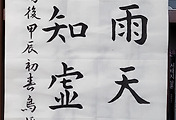 雨天
知虛
後甲辰初春